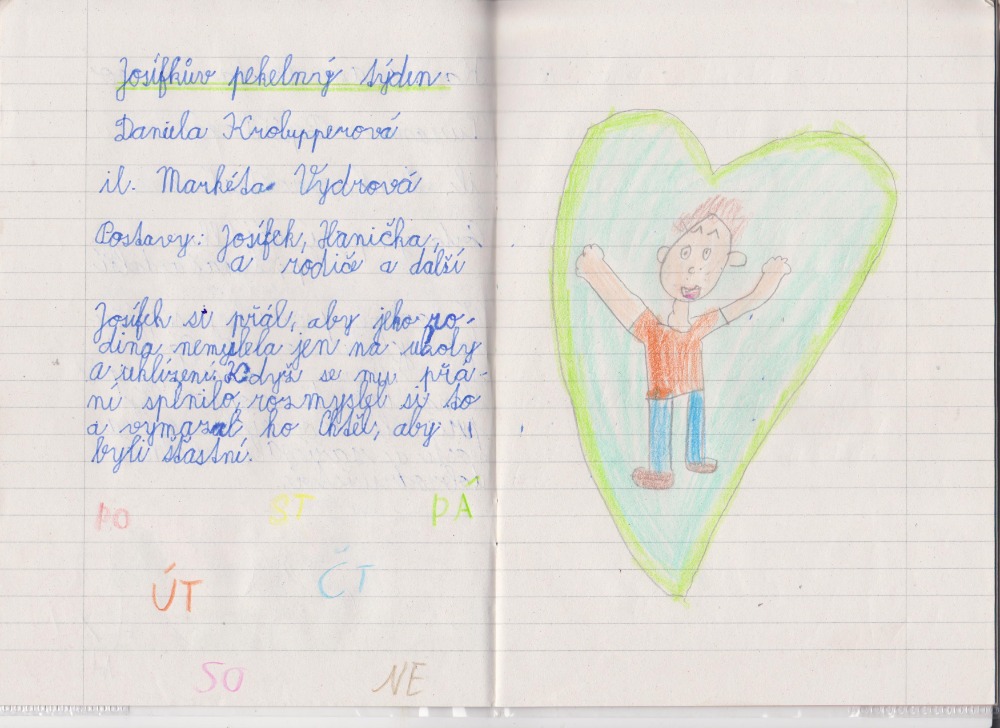 Josífkův pekelný týden.
Daniela Krolupperová
il. Markéta Vydrová
Postavy: Josífek, Hanička,
a rodiče a další
Josífek si přál, aby jeho ro-
dina nemyslela jen na úkoly
a uklízení. Když se mu přá-
ní splnilo, rozmyslel si to
a vymazal ho. Chtěl, aby
byli šťastní.
PO ST PÁ
ÚT ČT
SO NE